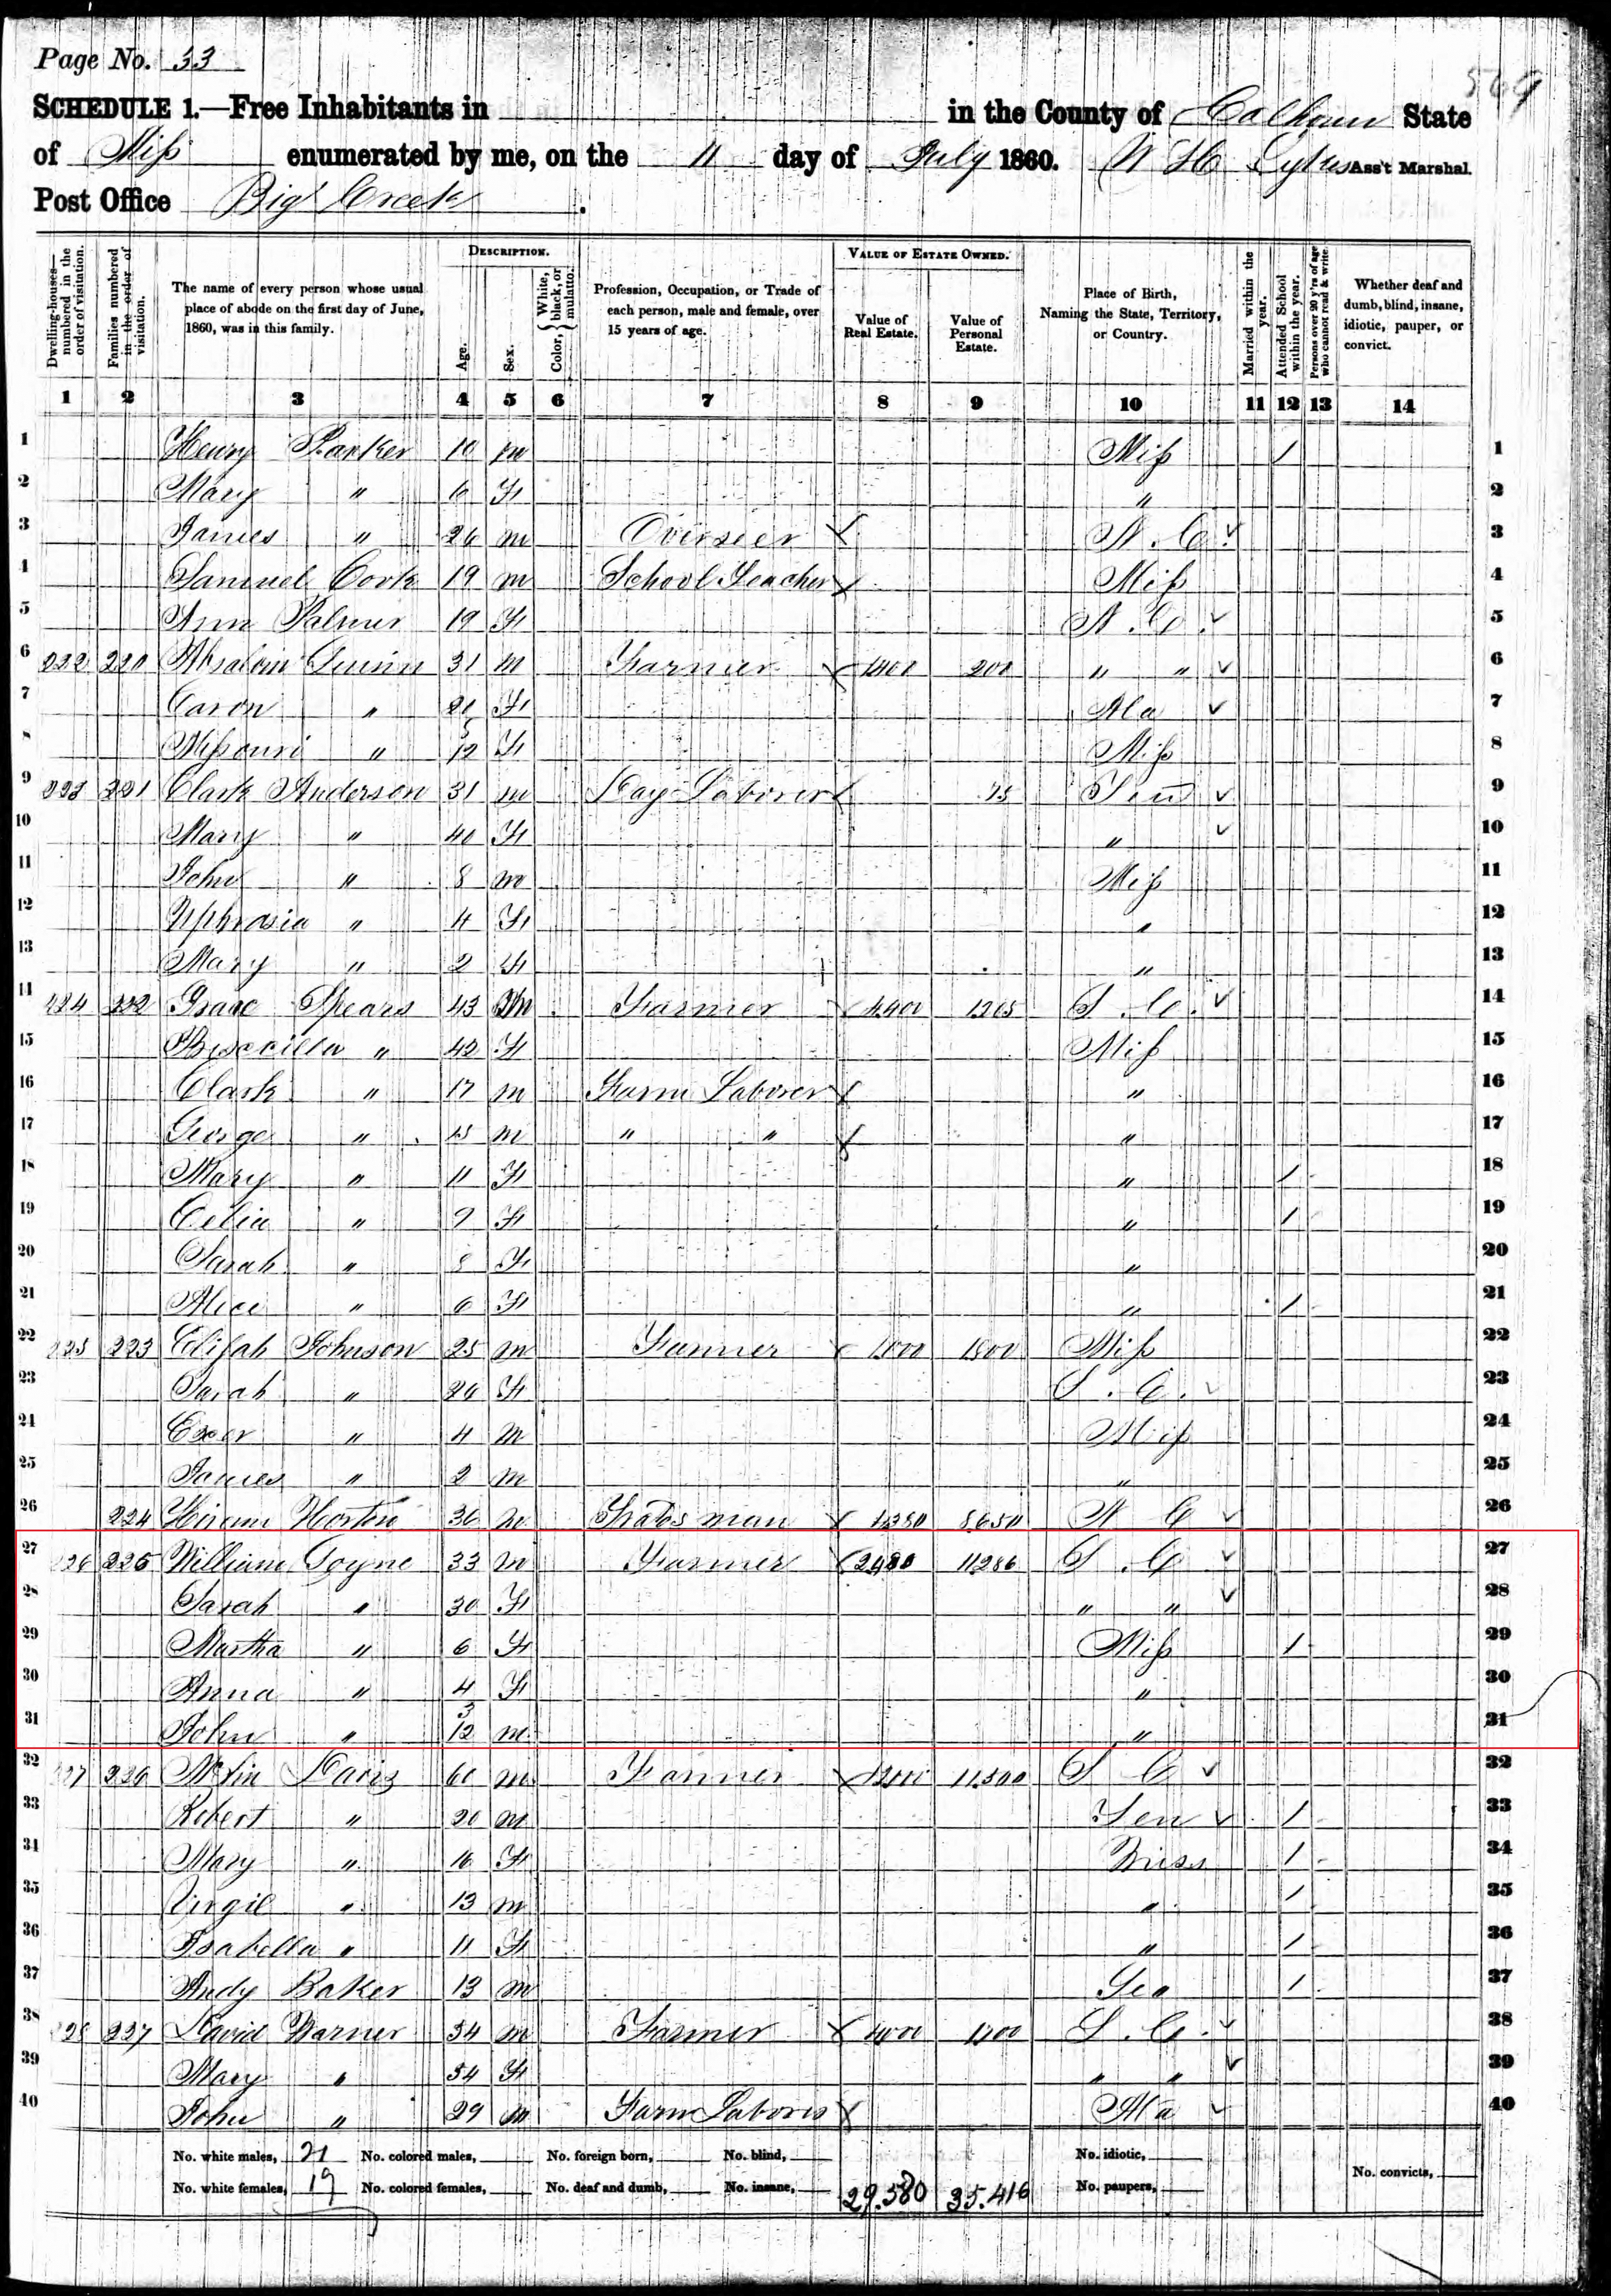 Page No. 33
569
SCHEDULE 1.—Free Inhabitants in in the County of Calhoun State
of Miss enumerated by me, on the 11 day of July 1860. W H Ass't Marshal.
Post Office Big Creek .
DESCRIPTION. VALUE OF ESTATE OWNED.
Dwelling-houses—numbered in the order of visitation.
Families numbered in the order of visitation.
The name of every person whose usual place of abode on the first day of June, 1860, was in this family.
Age.
Sex.
Color, White, black, or mulatto.
Profession, Occupation, or Trade of each person, male and female, over 15 years of age.
Value of Real Estate.
Value of Personal Estate.
Place of Birth, Naming the State, Territory, or Country.
Married within the year.
Attended School within the year.
Persons over 20 y'rs of age who cannot read & write.
Whether deaf and dumb, blind, insane, idiotic, pauper, or convict.
1 2 3 4 5 6 7 8 9 10 11 12 13 14
1 Henry Parker 10 m Miss / 1
2 Mary " 6 F " 2
3 James " 26 m Overseer N. C. 3
4 Samuel Cork 19 m School Teacher Miss 4
5 Ann Palmer 19 F N. C. 5
6 222 220 Absalom 31 m Farmer 1400 200 " " 6
7 Caron " 21 F Ala 7
8 Missouri " 12 F Miss 8
9 223 221 Clark Anderson 31 m Day Laborer 75 Ten 9
10 Mary " 40 F " 10
11 John " 8 m Miss 11
12 " 4 F " 12
13 Mary " 2 F " 13
14 224 222 Isaac Spears 43 m Farmer 4400 1265 S. C. 14
15 Priscilla " 42 F Miss 15
16 Clark " 17 m Farm Laborer " 16
17 George " 15 m " " " 17
18 Mary " 11 F " / 18
19 Celia " 9 F " / 19
20 Sarah " 8 F " 20
21 Alice " 6 F " / 21
22 225 223 Elijah Johnson 25 m Farmer 1800 1500 Miss 22
23 Sarah " 26 F S. C. 23
24 " 4 m Miss 24
25 James " 2 m " 25
26 224 Hiram Horton 36 m 1380 8650 N C 26
27 226 225 William Goyne 33 m Farmer 2480 11286 S. C 27
28 Sarah " 30 F " " 28
29 Martha " 6 F Miss / 29
30 Anna " 4 F " 30
31 John " 3/12 m " 31
32 227 226 Davis 60 m Farmer 11500 S C 32
33 Robert " 20 m Ten / 33
34 Mary " 16 F Miss / 34
35 Virgil " 13 m " / 35
36 Isabella " 11 F " / 36
37 Andy Baker 13 m Geo / 37
38 228 227 David Warner 54 m Farmer 4000 1200 S. C. 38
39 Mary " 54 F " " 39
40 John " 29 m Farm Laborer Ala 40
No. white males, 21 No. colored males, No. foreign born, No. blind, No. idiotic,
No. white females, 19 No. colored females, No. deaf and dumb, No. insane, 29.580 35.416 No. paupers, No. convicts,